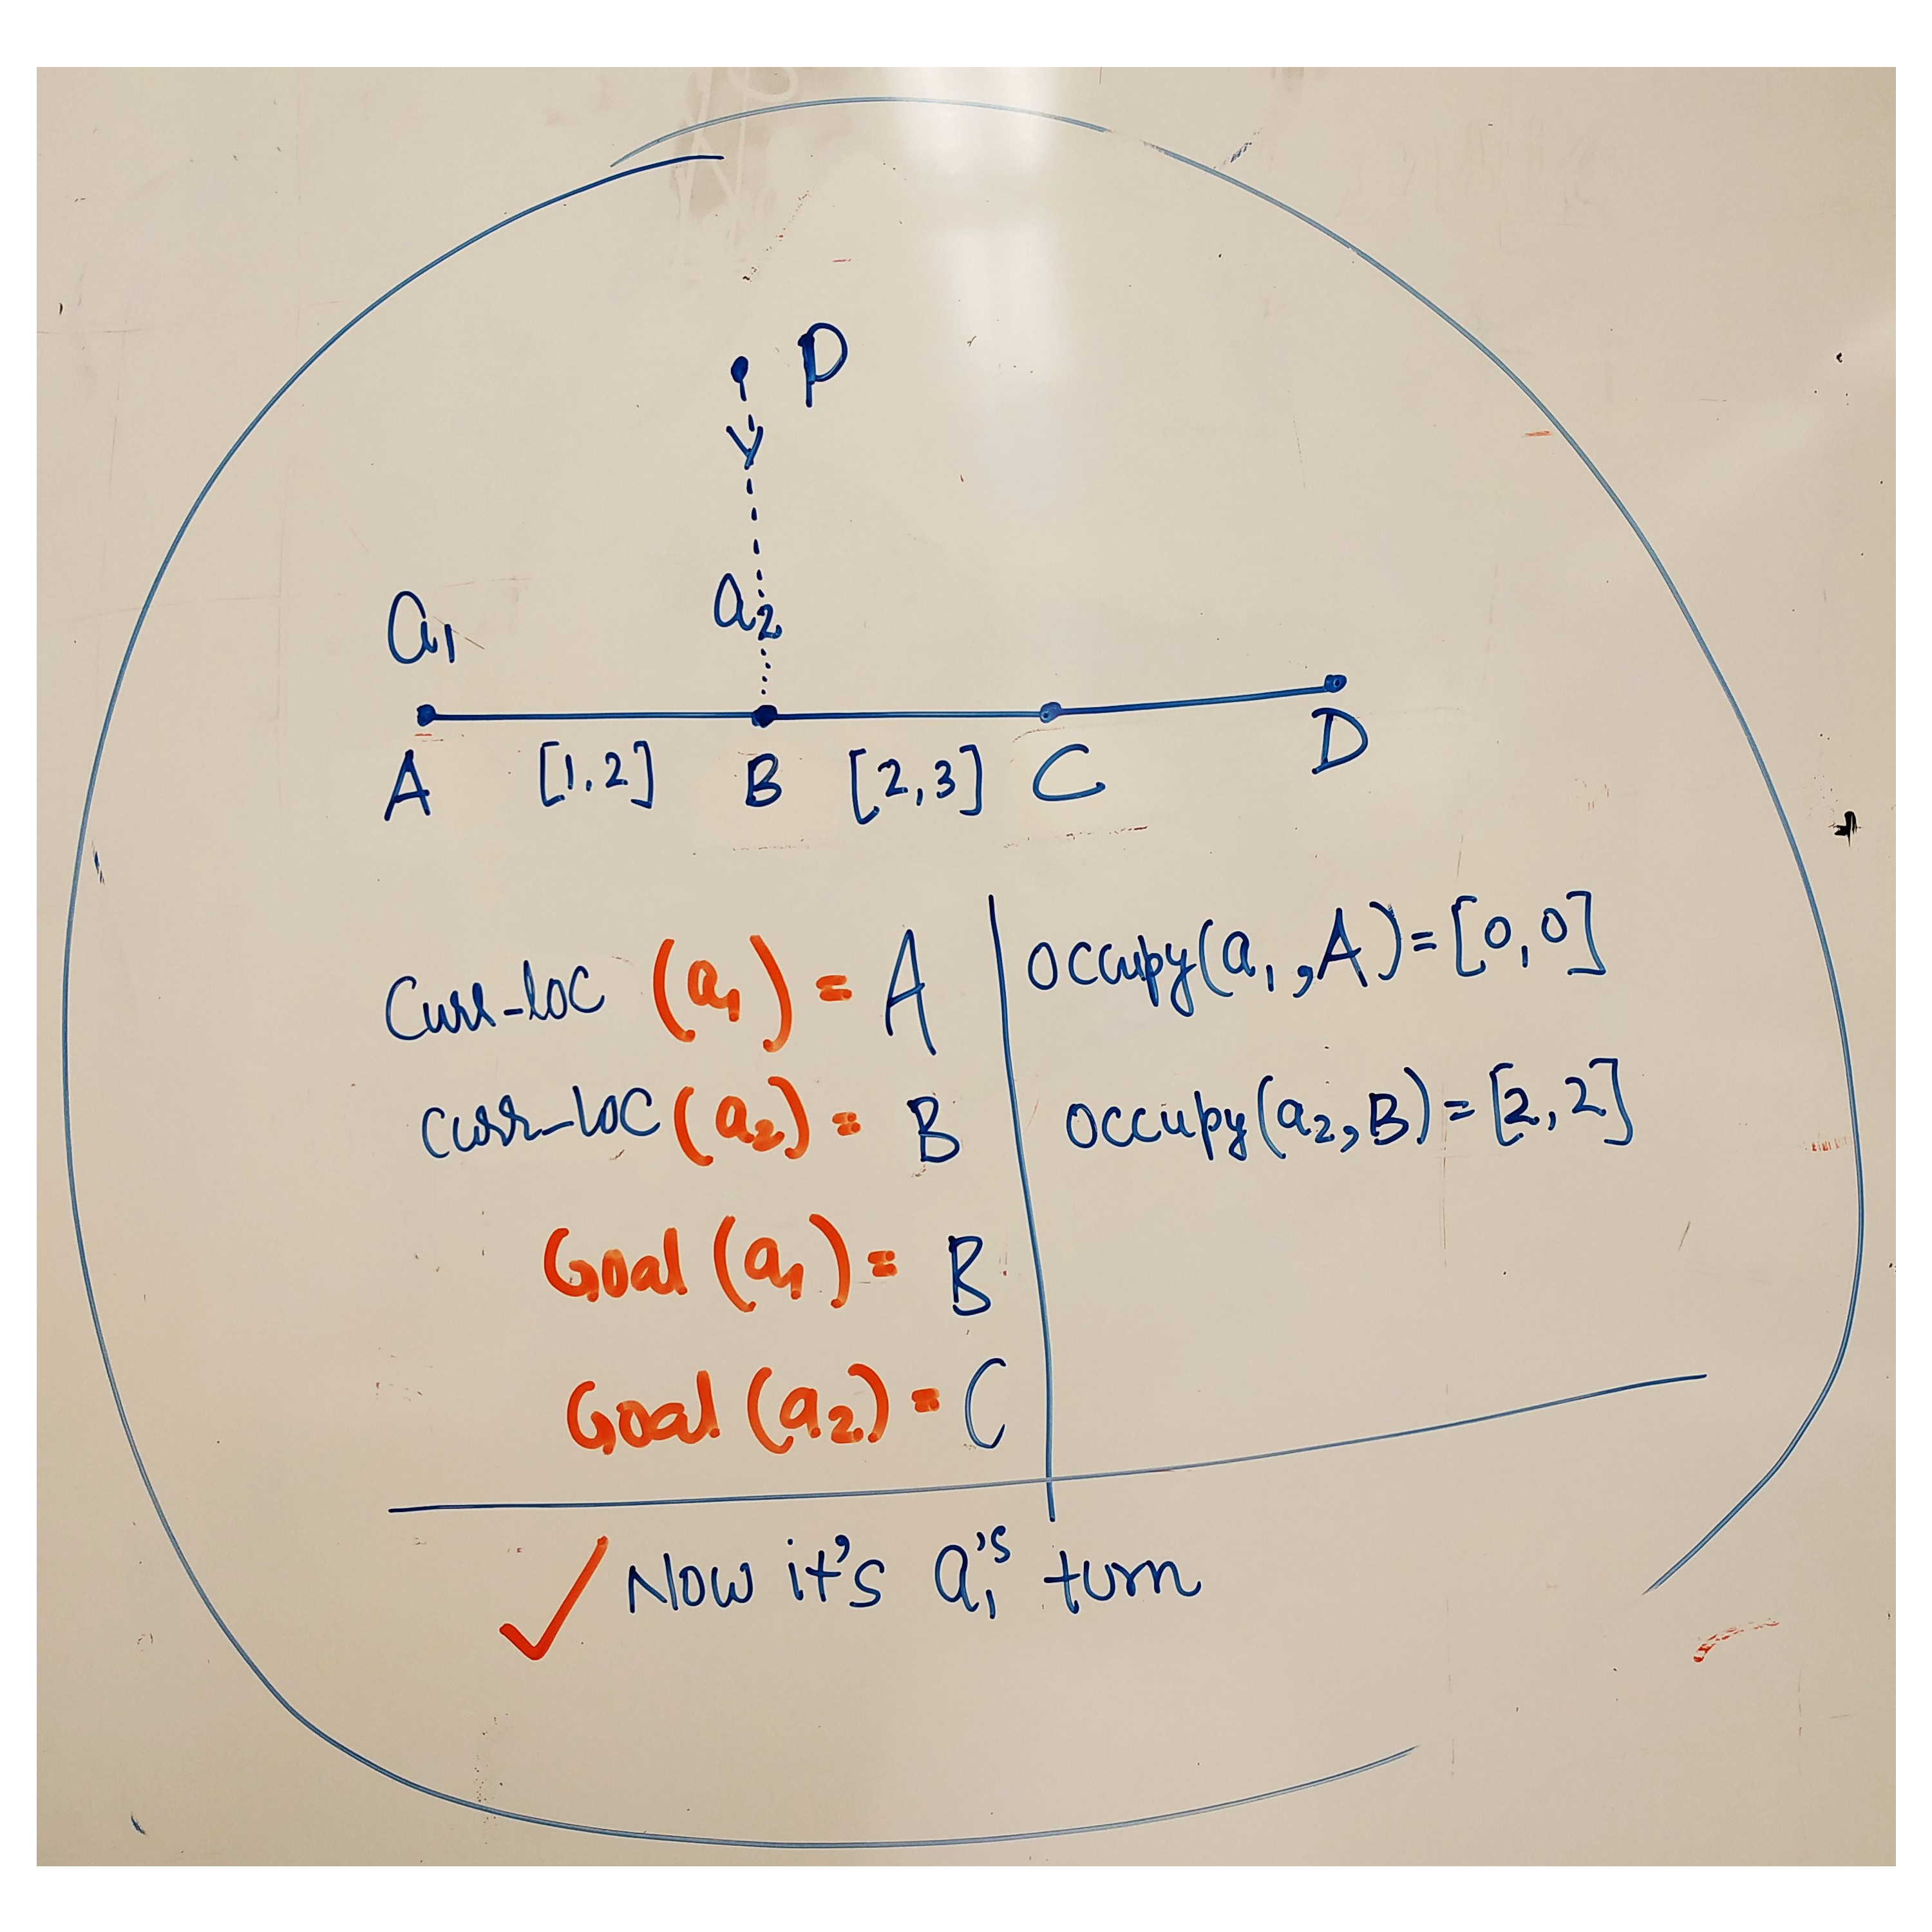 P
a₁ a₂
A [1,2] B [2,3] C D
Curr-loc (a₁) = A
Curr-loc (a₂) = B
Goal (a₁) = B
Goal (a₂) = C
occupy(a₁,A)=[0,0]
occupy(a₂,B)=[2,2]
✓ Now it's a₁'s turn